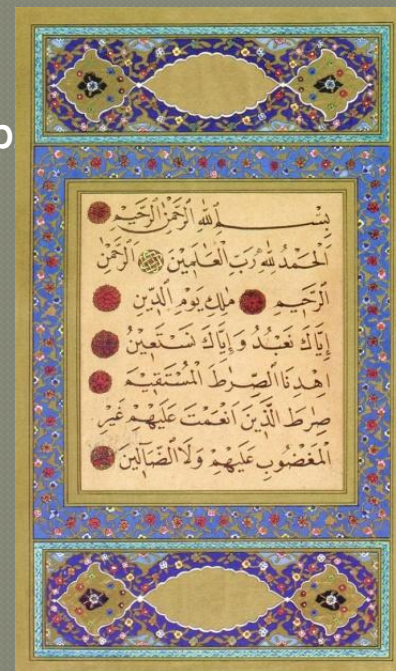 b
بِسْمِ اللهِ الرَّحْمٰنِ الرَّحِيمِ
اَلْحَمْدُ لِلّٰهِ رَبِّ الْعَالَمِينَ الرَّحْمٰنِ
الرَّحِيمِ مَالِكِ يَوْمِ الدِّينِ
إِيَّاكَ نَعْبُدُ وَإِيَّاكَ نَسْتَعِينُ
اِهْدِنَا الصِّرَاطَ الْمُسْتَقِيمَ
صِرَاطَ الَّذِينَ اَنْعَمْتَ عَلَيْهِمْ غَيْرِ
الْمَغْضُوبِ عَلَيْهِمْ وَلَا الضَّالِّينَ